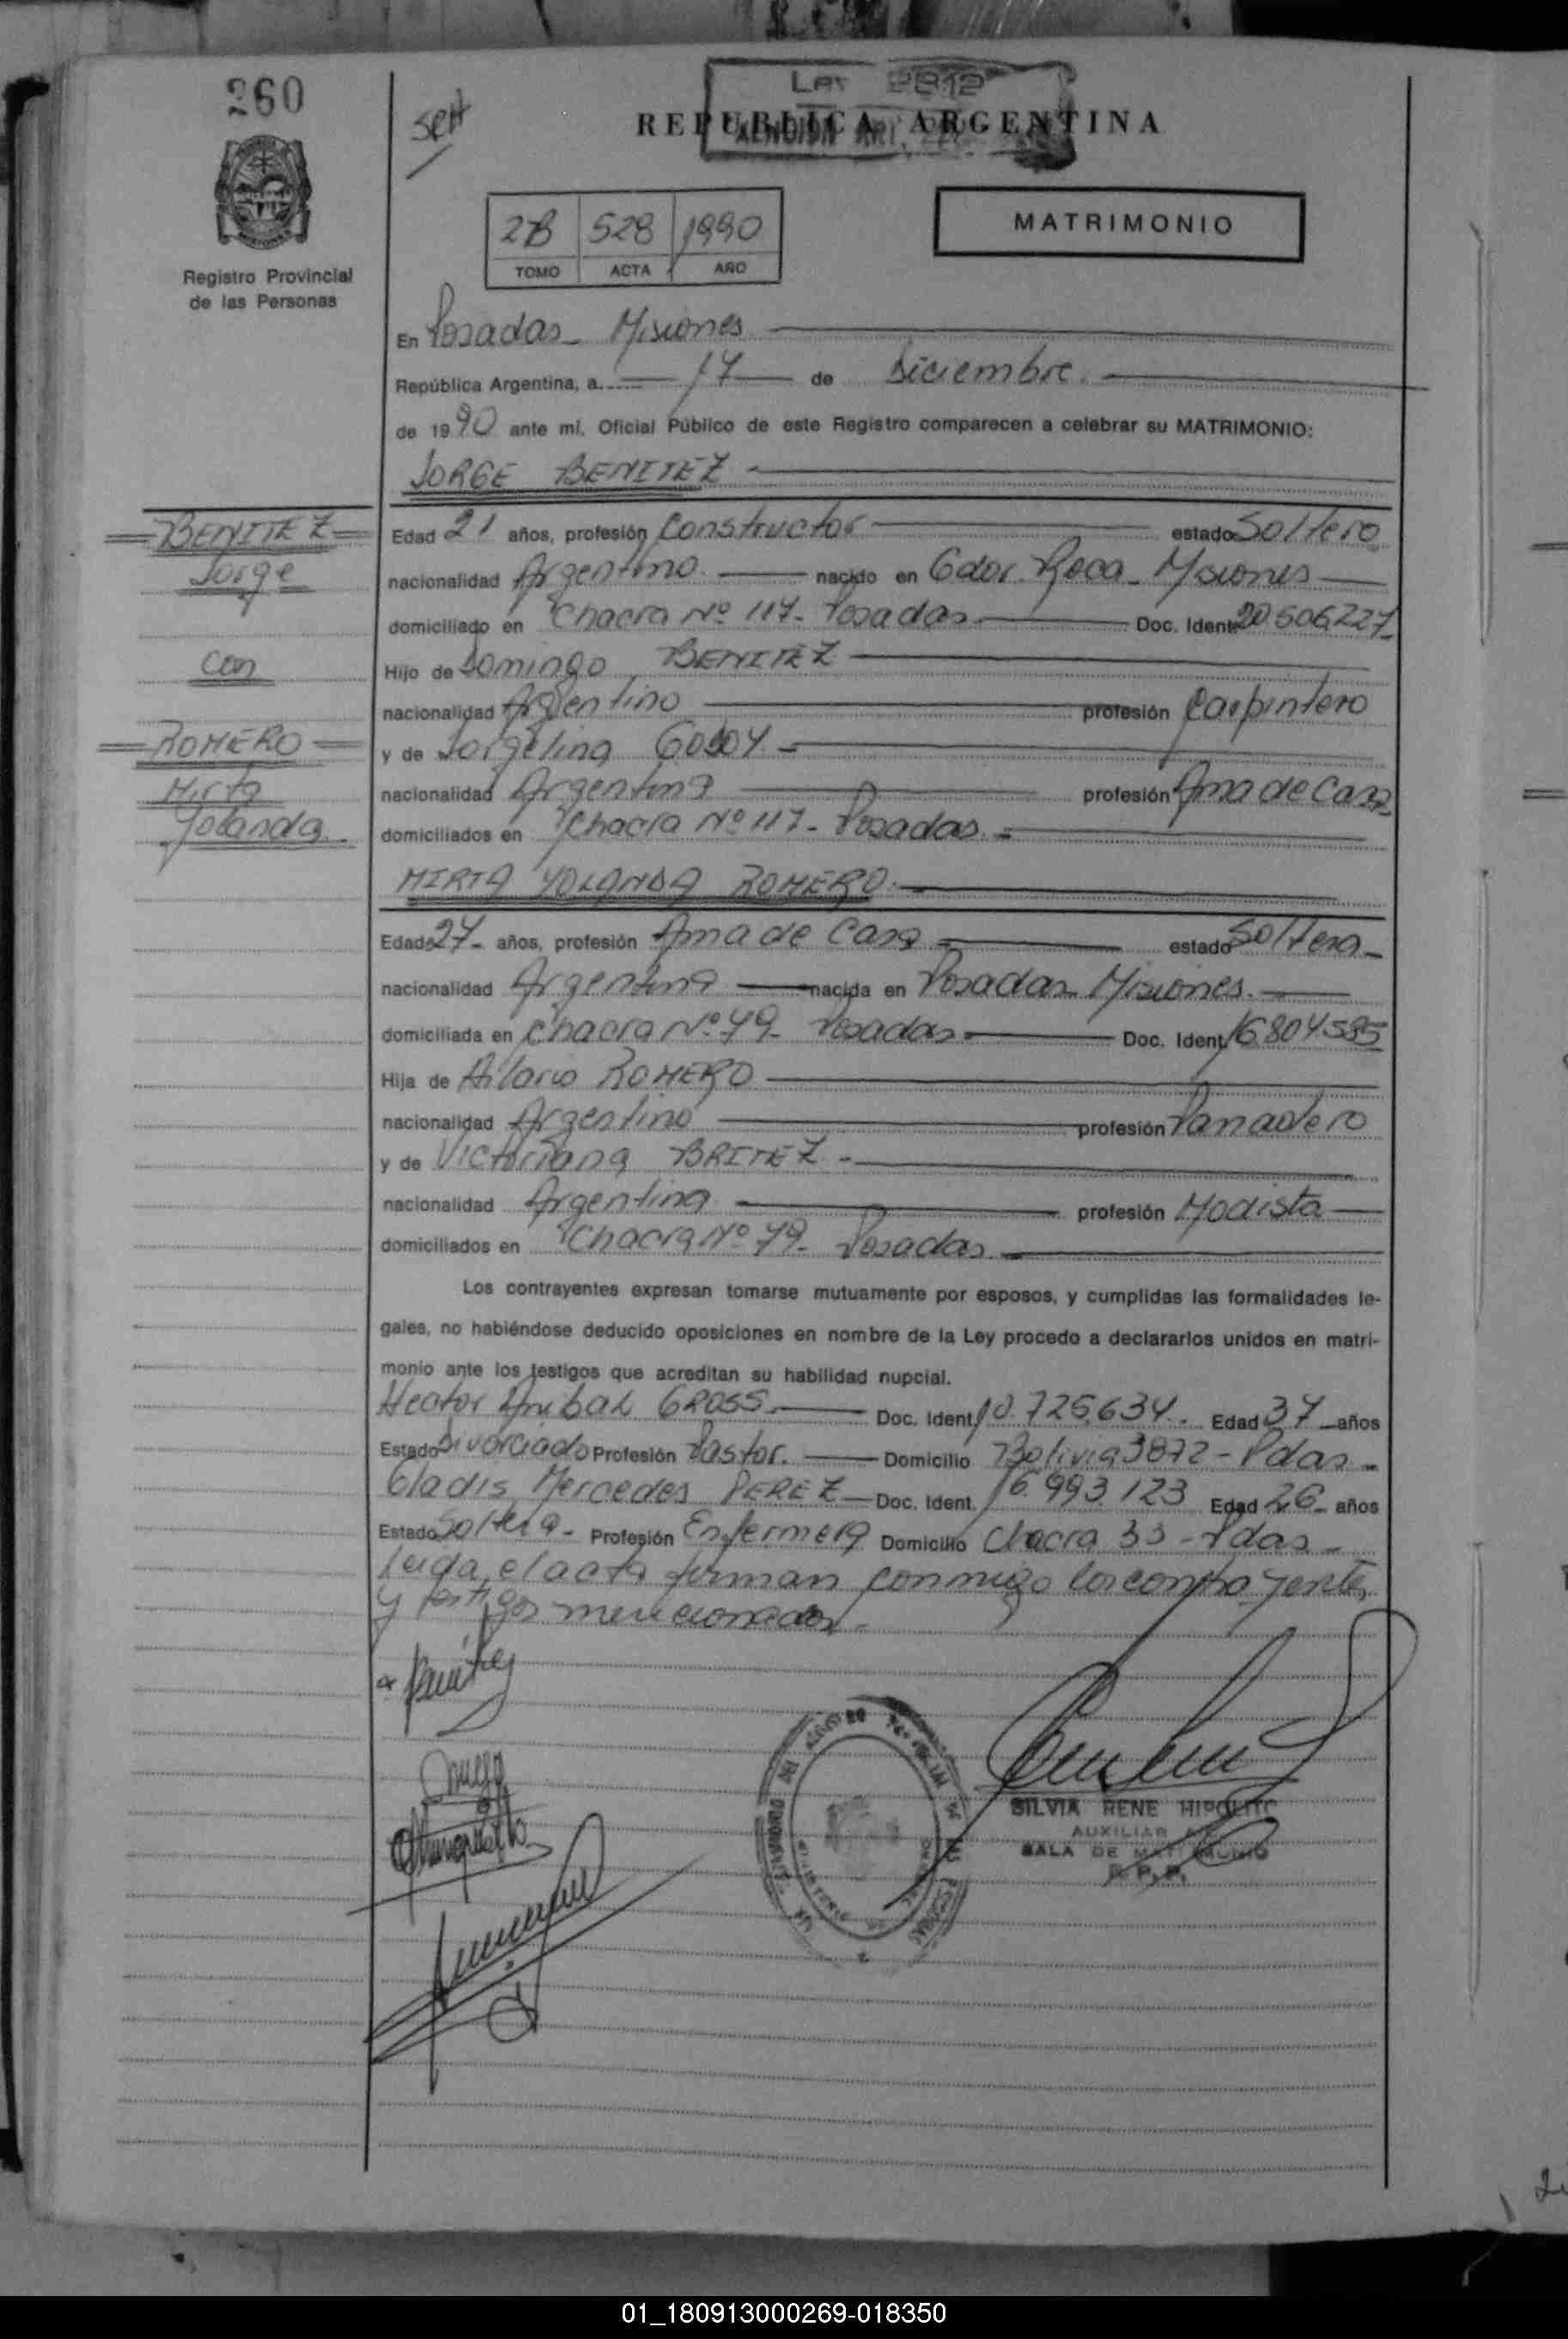 260
Sett
Ley 2812
REPUBLICA ARGENTINA
2B 528 1990
TOMO ACTA AÑO
MATRIMONIO
Registro Provincial
de las Personas
En Posadas - Misiones
República Argentina, a 17 de Diciembre.
de 1990 ante mí, Oficial Público de este Registro comparecen a celebrar su MATRIMONIO:
JORGE BENITEZ
BENITEZ
Jorge
con
ROMERO
Mirta
Yolanda
Edad 21 años, profesión Constructor estado Soltero
nacionalidad Argentino. nacido en Gdor. Roca - Misiones
domiciliado en Chacra Nº 117 - Posadas Doc. Ident. 20.506.227
Hijo de Domingo BENITEZ
nacionalidad Argentino profesión Carpintero
y de Jorgelina GODOY
nacionalidad Argentina profesión Ama de Casa
domiciliados en Chacra Nº 117 - Posadas
MIRTA YOLANDA ROMERO
Edad 27 - años, profesión Ama de Casa estado Soltera -
nacionalidad Argentina nacida en Posadas Misiones.
domiciliada en Chacra Nº 79 - Posadas Doc. Ident. 16.804.585
Hija de Hilario ROMERO
nacionalidad Argentino profesión Panadero
y de Victoriana BRITEZ -
nacionalidad Argentina profesión Modista
domiciliados en Chacra Nº 79 - Posadas
Los contrayentes expresan tomarse mutuamente por esposos, y cumplidas las formalidades le-
gales, no habiéndose deducido oposiciones en nombre de la Ley procedo a declararlos unidos en matri-
monio ante los testigos que acreditan su habilidad nupcial.
Hector Anibal GROSS Doc. Ident. 10.725.634. Edad 37 años
Estado Divorciado Profesión Pastor. Domicilio Bolivia 3872 - Pdas -
Gladis Mercedes PEREZ Doc. Ident. 16.993.123 Edad 26 - años
Estado Soltera - Profesión Enfermera Domicilio Chacra 33 - Pdas -
Leida el acta firman conmigo los contrayentes
y testigos mencionados -
SILVIA RENE HIPOLITO
AUXILIAR
SALA DE MATRIMONIO
R. P. P.
01_180913000269-018350